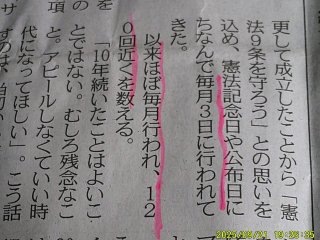 更して成立したことから「憲
法9条を守ろう」との思いを
込め、憲法記念日や公布日に
ちなんで毎月3日に行われて
きた。
以来ほぼ毎月行われ、12
0回近くを数える。
「10年続いたことはよいこ
とではない。むしろ残念なこ
と。アピールしなくていい時
代になってほしい」。こう話